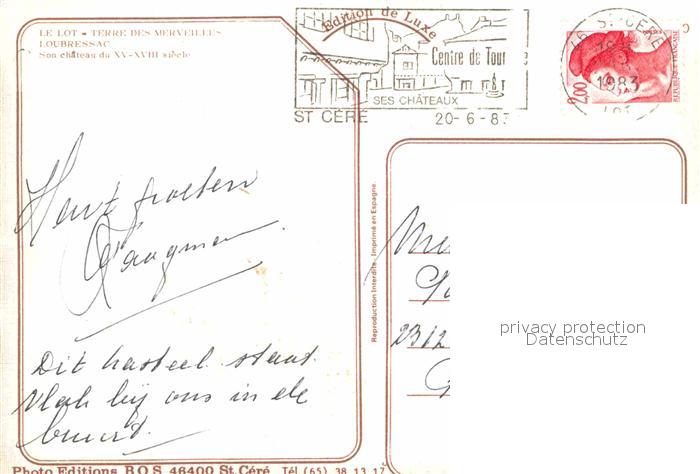 LE LOT - TERRE DES MERVEILLES
LOUBRESSAC
Son château du XV-XVIII siècle
Edition de Luxe
Centre de Tour
SES CHÂTEAUX
ST CÉRÉ
20-6-83
ST-CÉRÉ
1983
LOT
2,00
REPUBLIQUE FRANÇAISE
groeten
Dit kasteel staat
vlak bij ons in de
buurt.
Reproduction Interdite - Imprimé en Espagne.
2312
privacy protection
Datenschutz
Photo Editions R O S 46400 St. Céré Tél (65) 38 13 17